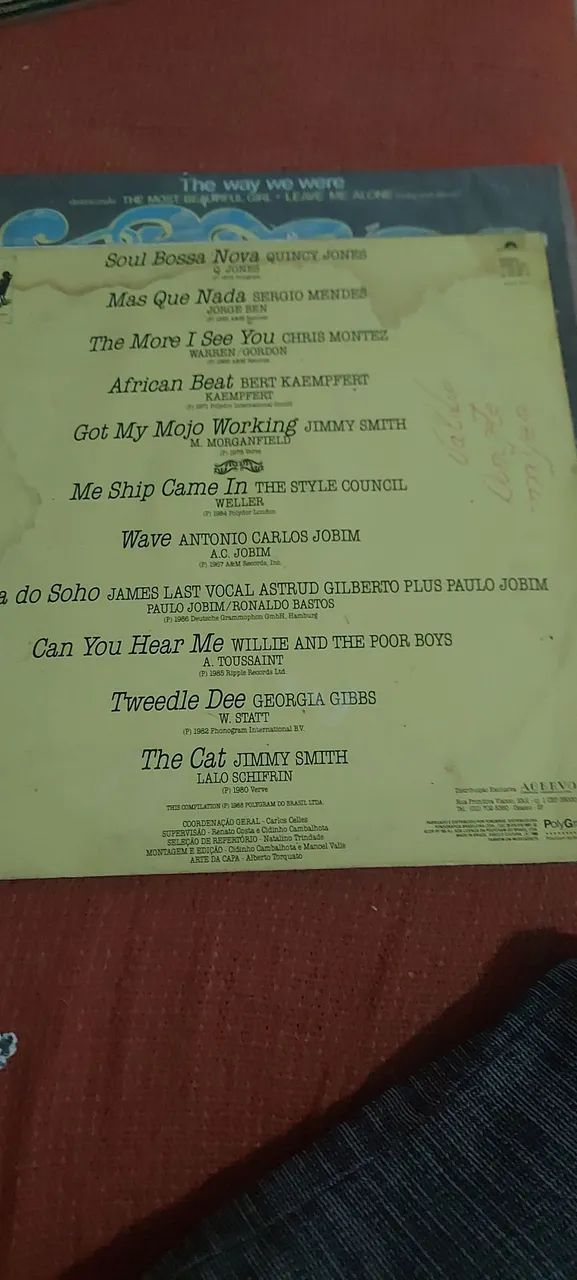 The way we were
THE MOST BEAUTIFUL GIRL • LEAVE ME ALONE
Soul Bossa Nova QUINCY JONES
Q. JONES
Mas Que Nada SERGIO MENDES
JORGE BEN
The More I See You CHRIS MONTEZ
WARREN/GORDON
African Beat BERT KAEMPFERT
KAEMPFERT
(P) 1971 Polydor International GmbH
Got My Mojo Working JIMMY SMITH
M. MORGANFIELD
Me Ship Came In THE STYLE COUNCIL
WELLER
(P) 1984 Polydor London
Wave ANTONIO CARLOS JOBIM
A.C. JOBIM
(P) 1967 A&M Records, Inc.
a do Soho JAMES LAST VOCAL ASTRUD GILBERTO PLUS PAULO JOBIM
PAULO JOBIM/RONALDO BASTOS
(P) 1986 Deutsche Grammophon GmbH, Hamburg
Can You Hear Me WILLIE AND THE POOR BOYS
A. TOUSSAINT
(P) 1985 Ripple Records Ltd.
Tweedle Dee GEORGIA GIBBS
W. STATT
(P) 1982 Phonogram International B.V.
The Cat JIMMY SMITH
LALO SCHIFRIN
(P) 1980 Verve
THIS COMPILATION (P) 1988 POLYGRAM DO BRASIL LTDA.
COORDENAÇÃO GERAL - Carlos Celles
SUPERVISÃO - Renato Costa e Cidinho Cambalhota
SELEÇÃO DE REPERTÓRIO - Natalino Trindade
MONTAGEM E EDIÇÃO - Cidinho Cambalhota e Manoel Valle
ARTE DA CAPA - Alberto Torquato
Distribuição Exclusiva ACERVO
PolyGr